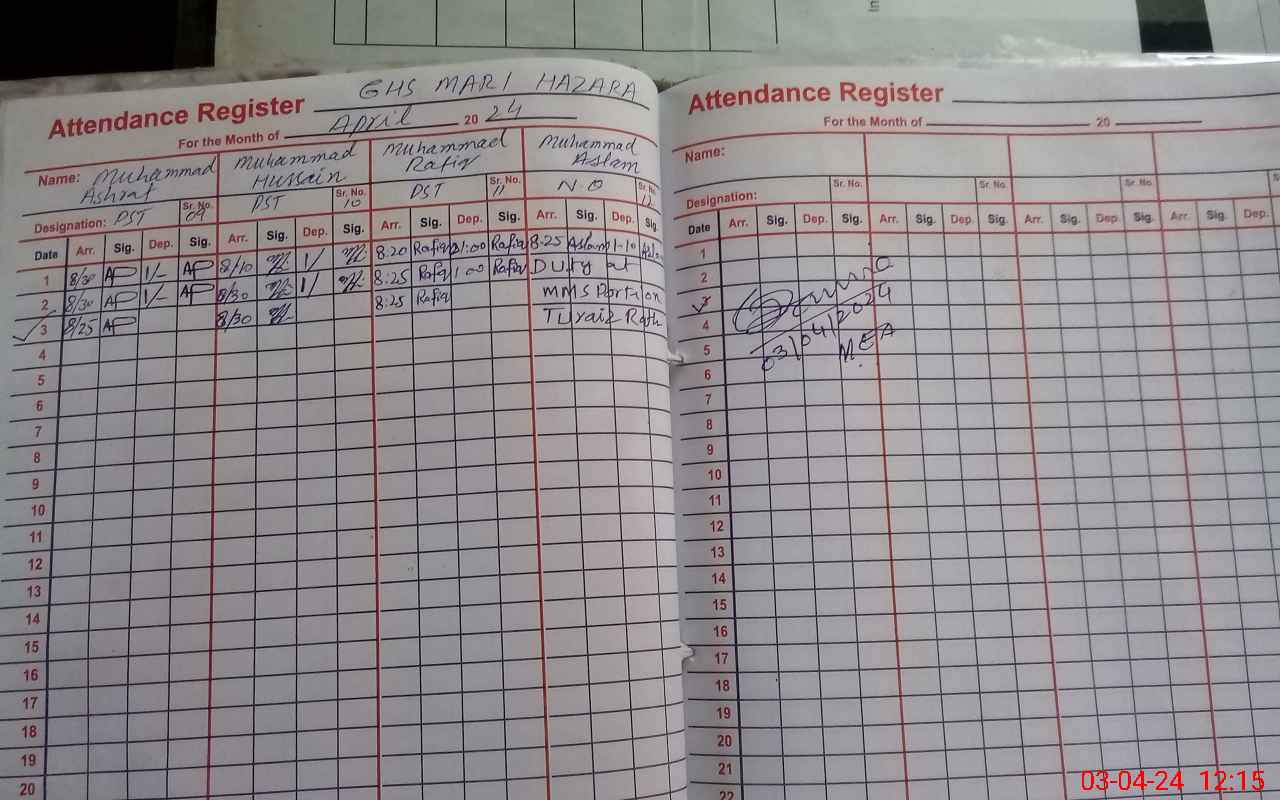 In
Attendance Register GHS MARI HAZARA
For the Month of April 20 24
Name: Muhammad Ashraf Muhammad Hussain Muhammad Rafiq Muhammad Aslam
Designation: PST Sr. No. 09 PST Sr. No. 10 PST Sr. No. 11 N.O Sr. No. 12
Date Arr. Sig. Dep. Sig. Arr. Sig. Dep. Sig. Arr. Sig. Dep. Sig. Arr. Sig. Dep. Sig.
1 8/30 AP 1/- AP 8/10 1/ 8:20 Rafiq 1:00 Rafiq 8:25 Aslam 1-10 Aslam
2 8/30 AP 1/- AP 8/30 1/ 8:25 Rafiq 1:00 Rafiq Duty at
3 8/25 AP 8/30 8:25 Rafiq MMS Portion
4
5
6
7
8
9
10
11
12
13
14
15
16
17
18
19
20
Attendance Register
For the Month of 20
Name:
Designation: Sr. No. Sr. No. Sr. No. S
Date Arr. Sig. Dep. Sig. Arr. Sig. Dep. Sig. Arr. Sig. Dep. Sig. Arr. Sig. Dep.
1
2
3
4
5
03/04/2024
M.EA
6
7
8
9
10
11
12
13
14
15
16
17
18
19
20
21
22
03-04-24 12:15